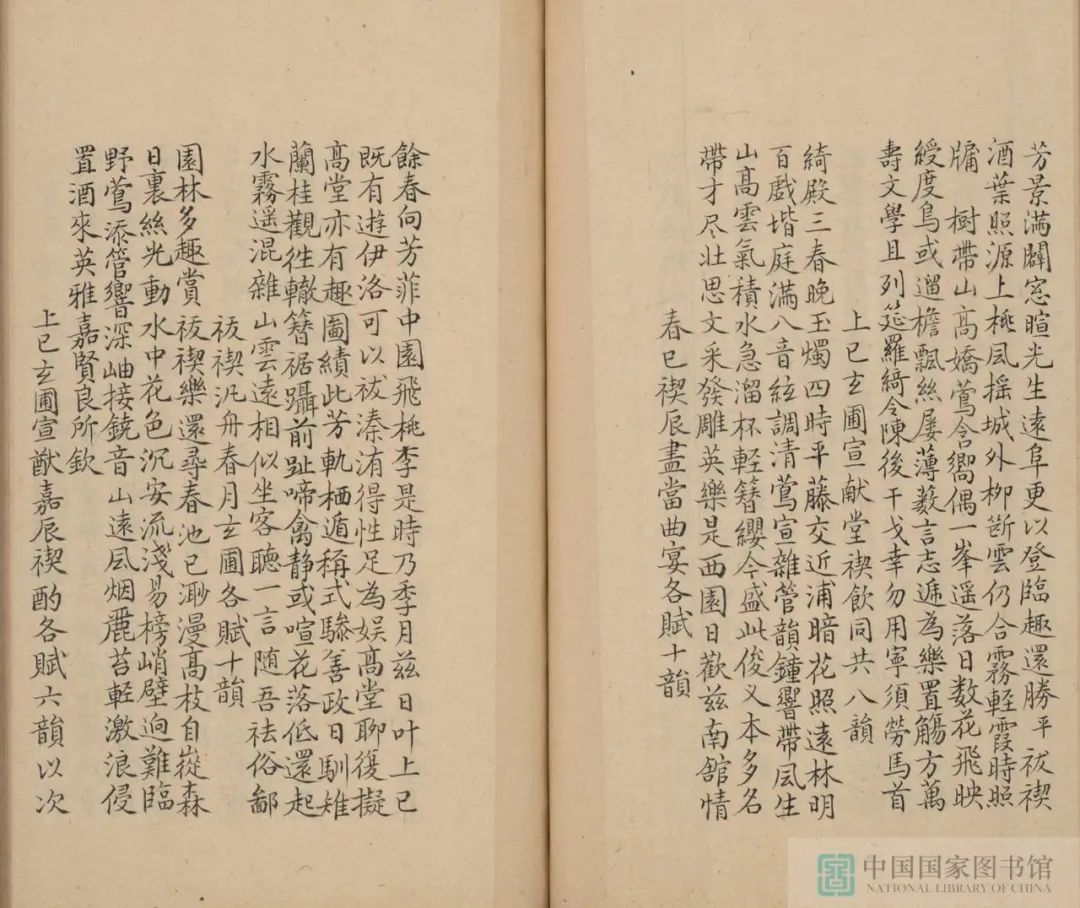 芳景満闢窓暄光生遠阜更以登臨趣還勝平祓禊
酒葉照源上桃凮揺城外柳断雲仍合霧輕霞時照
牖 樹帶山高嬌鶯含嚮偶一峯遥落日数花飛映
綬度鳥或遛檐飄絲屡薄藪言志遞為樂置觴方萬
壽文學且列筵羅綺令陳後干戈幸勿用寧須勞馬首
上巳玄圃宣猷堂禊飲同共八韻
綺殿三春晚玉燭四時平藤交近浦暗花照遠林明
百戲堦庭滿八音絃調清鶯宣雜管韻鐘響帶凮生
山高雲氣積水急溜杯輕簪纓今盛此俊乂本多名
帶才尽壮思文采發雕英樂是西園日歡兹南舘情
春巳禊辰盡當曲宴各賦十韻
餘春向芳菲中園飛桃李是時乃季月兹日叶上巳
既有遊伊洛可以祓溱洧得性足為娯高堂聊復擬
高堂亦有趣圖績此芳軌栖遁稱式驂善政日馴雉
蘭桂觀徃轍簪裾躡前趾啼禽静或喧花落低還起
水霧遥混雜山雲遠相似坐客聽一言随吾祛俗鄙
祓禊汎舟春月玄圃各賦十韻
園林多趣賞祓禊樂還尋春池已渺漫高枝自嵸森
日裏絲光動水中花色沉安流淺易榜峭壁逈難臨
野鶯添管響深岫接鐃音山遠凮烟麗苔輕激浪侵
置酒來英雅嘉賢良所欽
上巳玄圃宣猷嘉辰禊酌各賦六韻以次
中国国家图书馆
NATIONAL LIBRARY OF CHINA